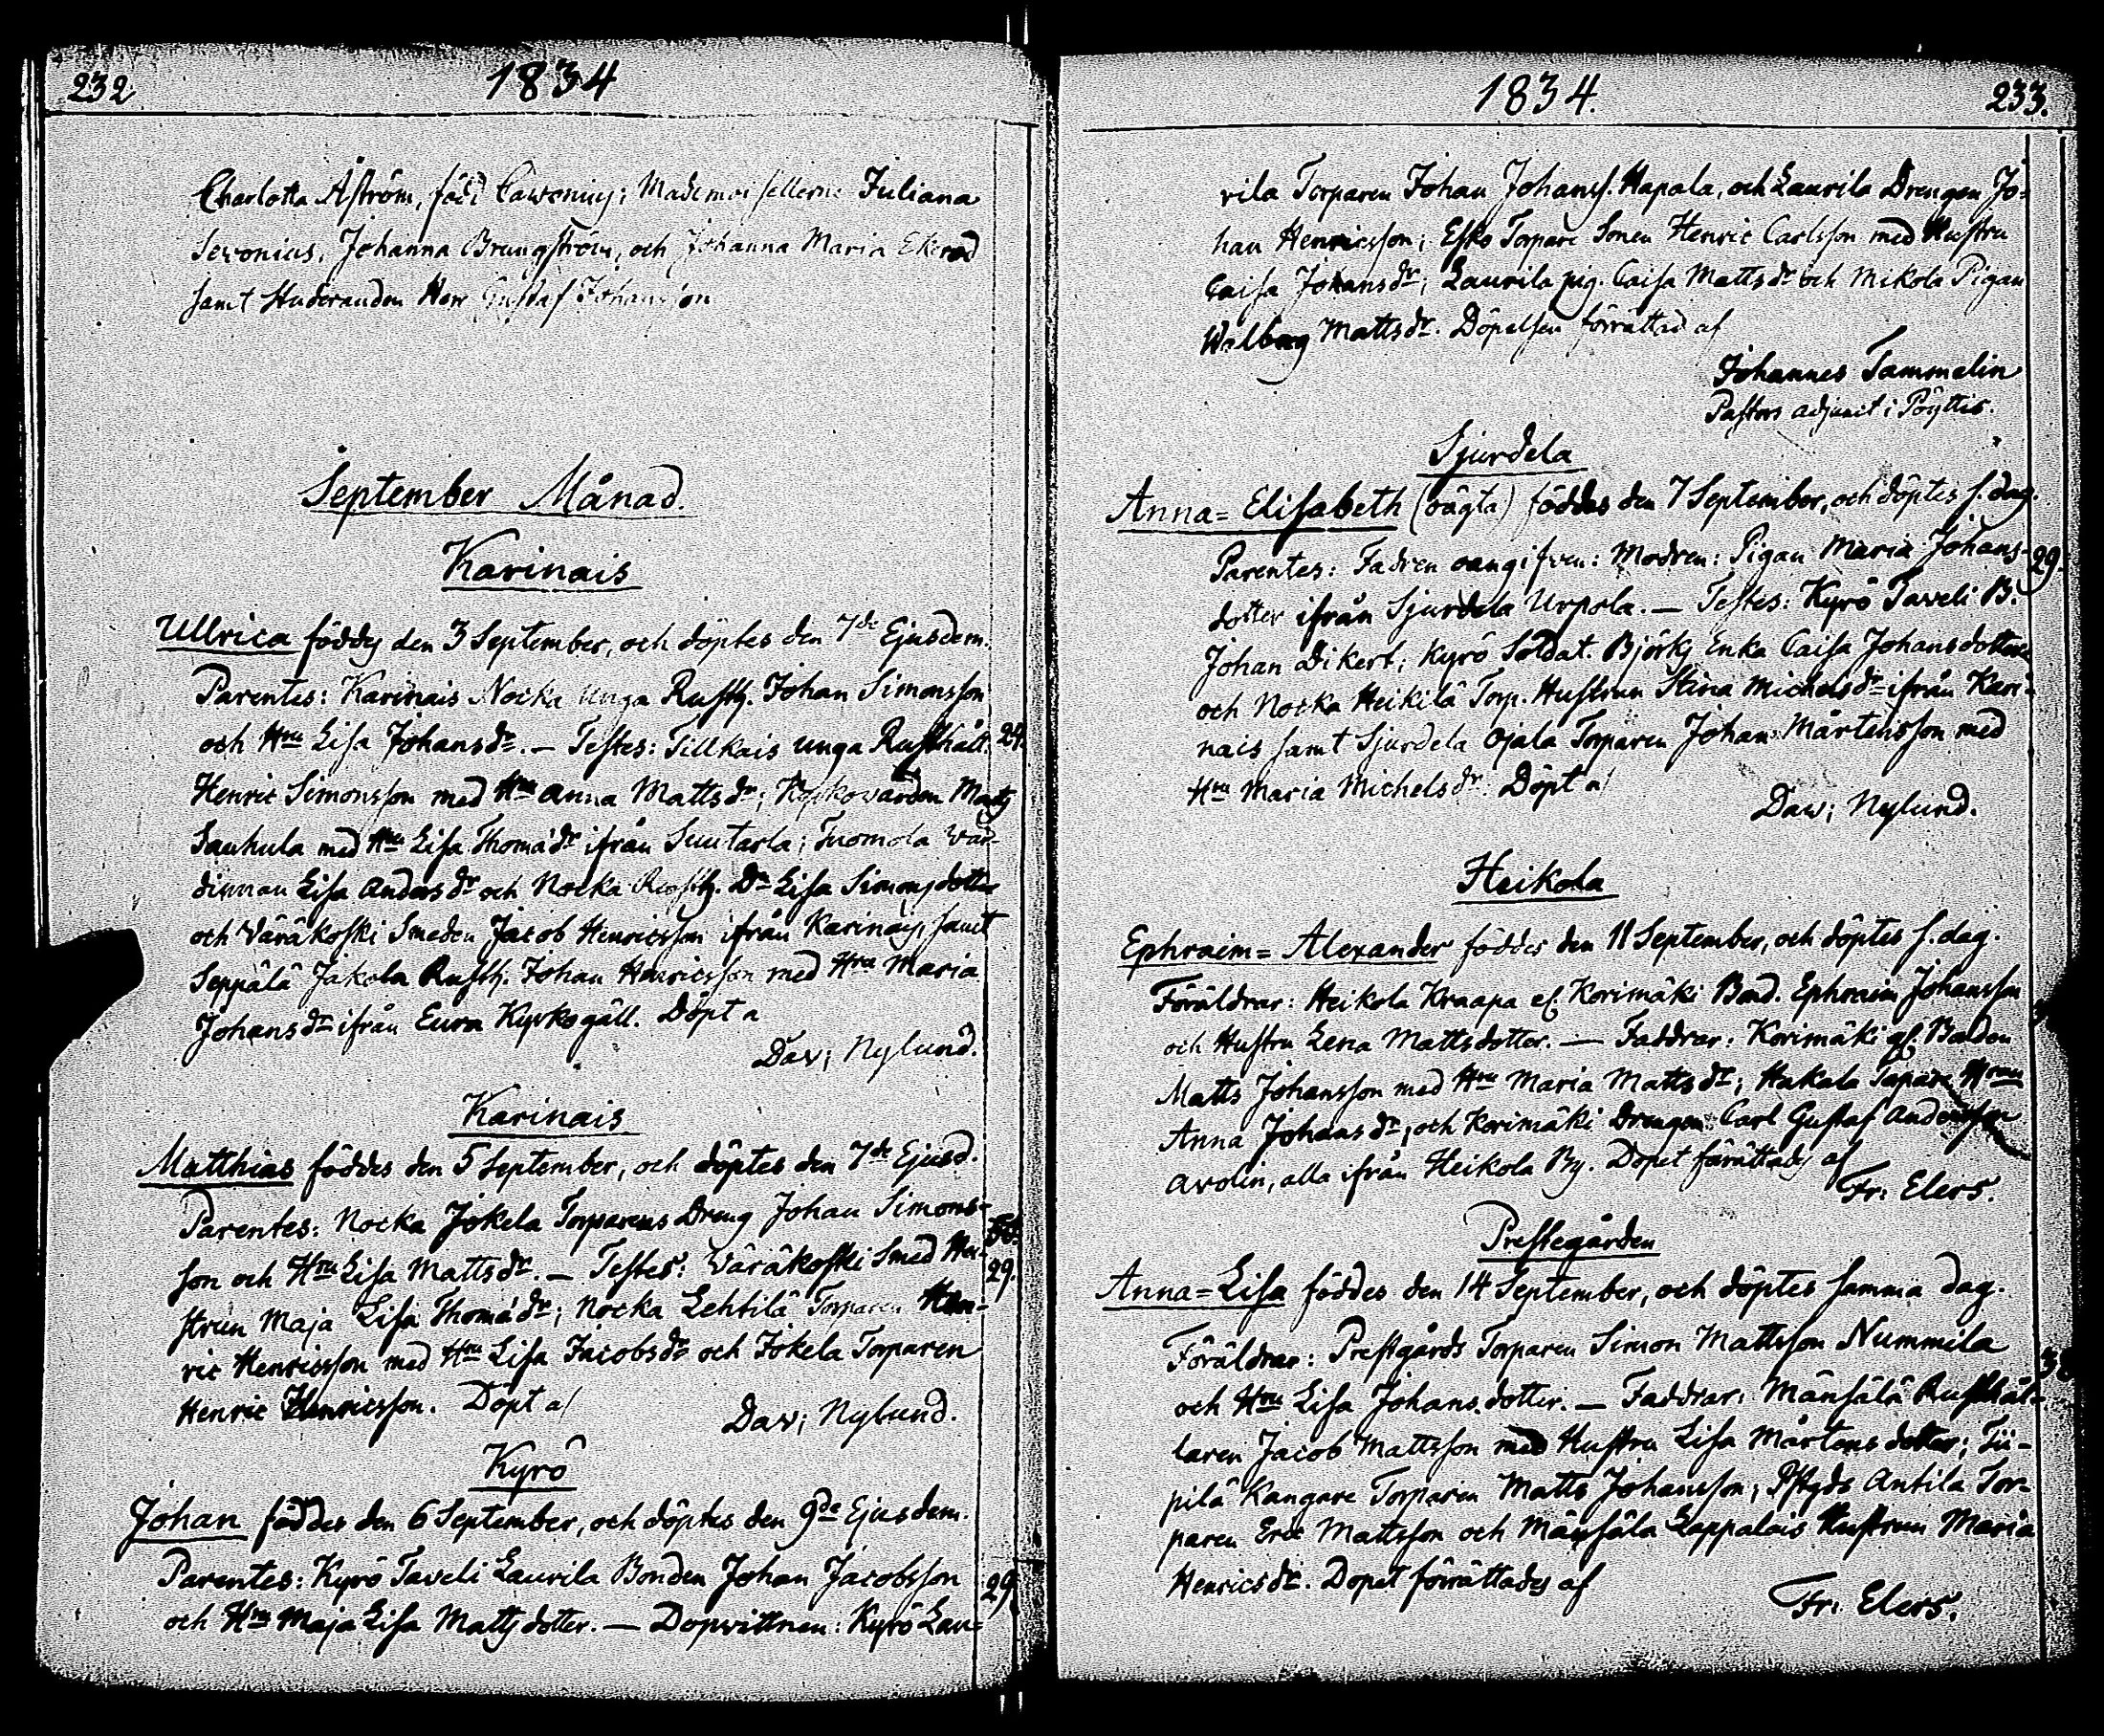 232
1834
Charlotta Åström, född Cawonius; Mademoisellerna Juliana
Sevonius, Johanna Brungström, och Johanna Maria Ekerod
samt Studeranden Herr Gustaf Johansson
September Månad.
Karinais
Ullrica föddes den 3 September, och döptes den 7de Ejusdem.
Parentes: Karinais Nocka unga Rusth. Johan Simonsson
och Hru Lisa Johansdr. — Testes: Tillkais unga Rusthålt. 29.
Henric Simonsson med Hru Anna Mattsdr; Matts
Sauhula med Hru Lisa Thomædr ifrån Suutarla; Tuomola Vär-
dinnan Lisa Andersdr och Nocka Rusth. Dr Lisa Simonsdotter
och Väräkoski Smeden Jacob Henricsson ifrån Karinais, samt
Seppälä Jakola Rusth. Johan Henricsson med Hru Maria
Johansdr ifrån Eura Kyrkogäll. Döpt a
Dav; Nylund.
Karinais
Matthias föddes den 5 September, och döptes den 7de Ejusd.
Parentes: Nocka Jokela Torparens Dreng Johan Simons-
son och Hru Lisa Mattsdr. — Testes: Väräkoski Smed Hu- 29.
strun Maja Lisa Thomædr; Nocka Lehtilä Torparen Hen-
ric Henricsson med Hru Lisa Jacobsdr och Jokela Torparen
Henric Henricsson. Döpt af
Dav; Nylund.
Kyrö
Johan föddes den 6 September, och döptes den 9de Ejusdem.
Parentes: Kyrö Taveli Laurila Bonden Johan Jacobsson 29.
och Hru Maja Lisa Mattsdotter. — Dopvittnen: Kyrö Lau=
1834.
233.
rila Torparen Johan Johanss. Hapala, och Laurila Drengen Jo-
han Henricsson; Esko Torpare Sonen Henric Carlsson med Hustru
Caisa Johansdr; Laurila pig. Caisa Mattsdr och Mikola Pigan
Walborg Mattsdr. Döpelsen förrättad af
Johannes Tammelin
Pastors adjunct i Pöyttis.
Sjurdela
Anna=Elisabeth (oägta) föddes den 7 September, och döptes s. dag.
Parentes: Fadren oangifven: Modren: Pigan Maria Johans- 29.
dotter ifrån Sjurdela Urpola. — Testes: Kyrö Taveli B.
Johan Dikert; Kyrö Soldat. Björks Enka Caisa Johansdotter
och Nocka Heikilä Torp. Hustrun Stina Michelsdr ifrån Kari-
nais samt Sjurdela Ojala Torparen Johan Mårtensson med
Hru Maria Michelsdr. Döpt af
Dav; Nylund.
Heikola
Ephraim=Alexander föddes den 11 September, och döptes s. dag.
Föräldrar: Heikola Knaapa el. Korimäki Bond. Ephraim Johansson
och Hustru Lena Mattsdotter. — Faddrar: Korimäki gl. Bonden
Matts Johansson med Hru Maria Mattsdr; Hakala Hrun
Anna Johansdr, och Korimäki Drengen Carl Gustaf Andersson
Avolin, alla ifrån Heikola By. Dopet förrättades af
Fr: Elers.
Prestegården
Anna=Lisa föddes den 14 September, och döptes samma dag.
Föräldrar: Prestgårds Torparen Simon Mattsson Nummila
och Hru Lisa Johansdotter. — Faddrar: Mänsälä Rusthål-
laren Jacob Mattsson med Hustru Lisa Mårtensdotter; Tii-
pilä Kangare Torparen Matts Johansson; Pstgds Antila Tor-
paren Eric Mattsson och Mänsäla Lappalais Hustrun Maria
Henricsdr. Dopet förrättades af
Fr: Elers.